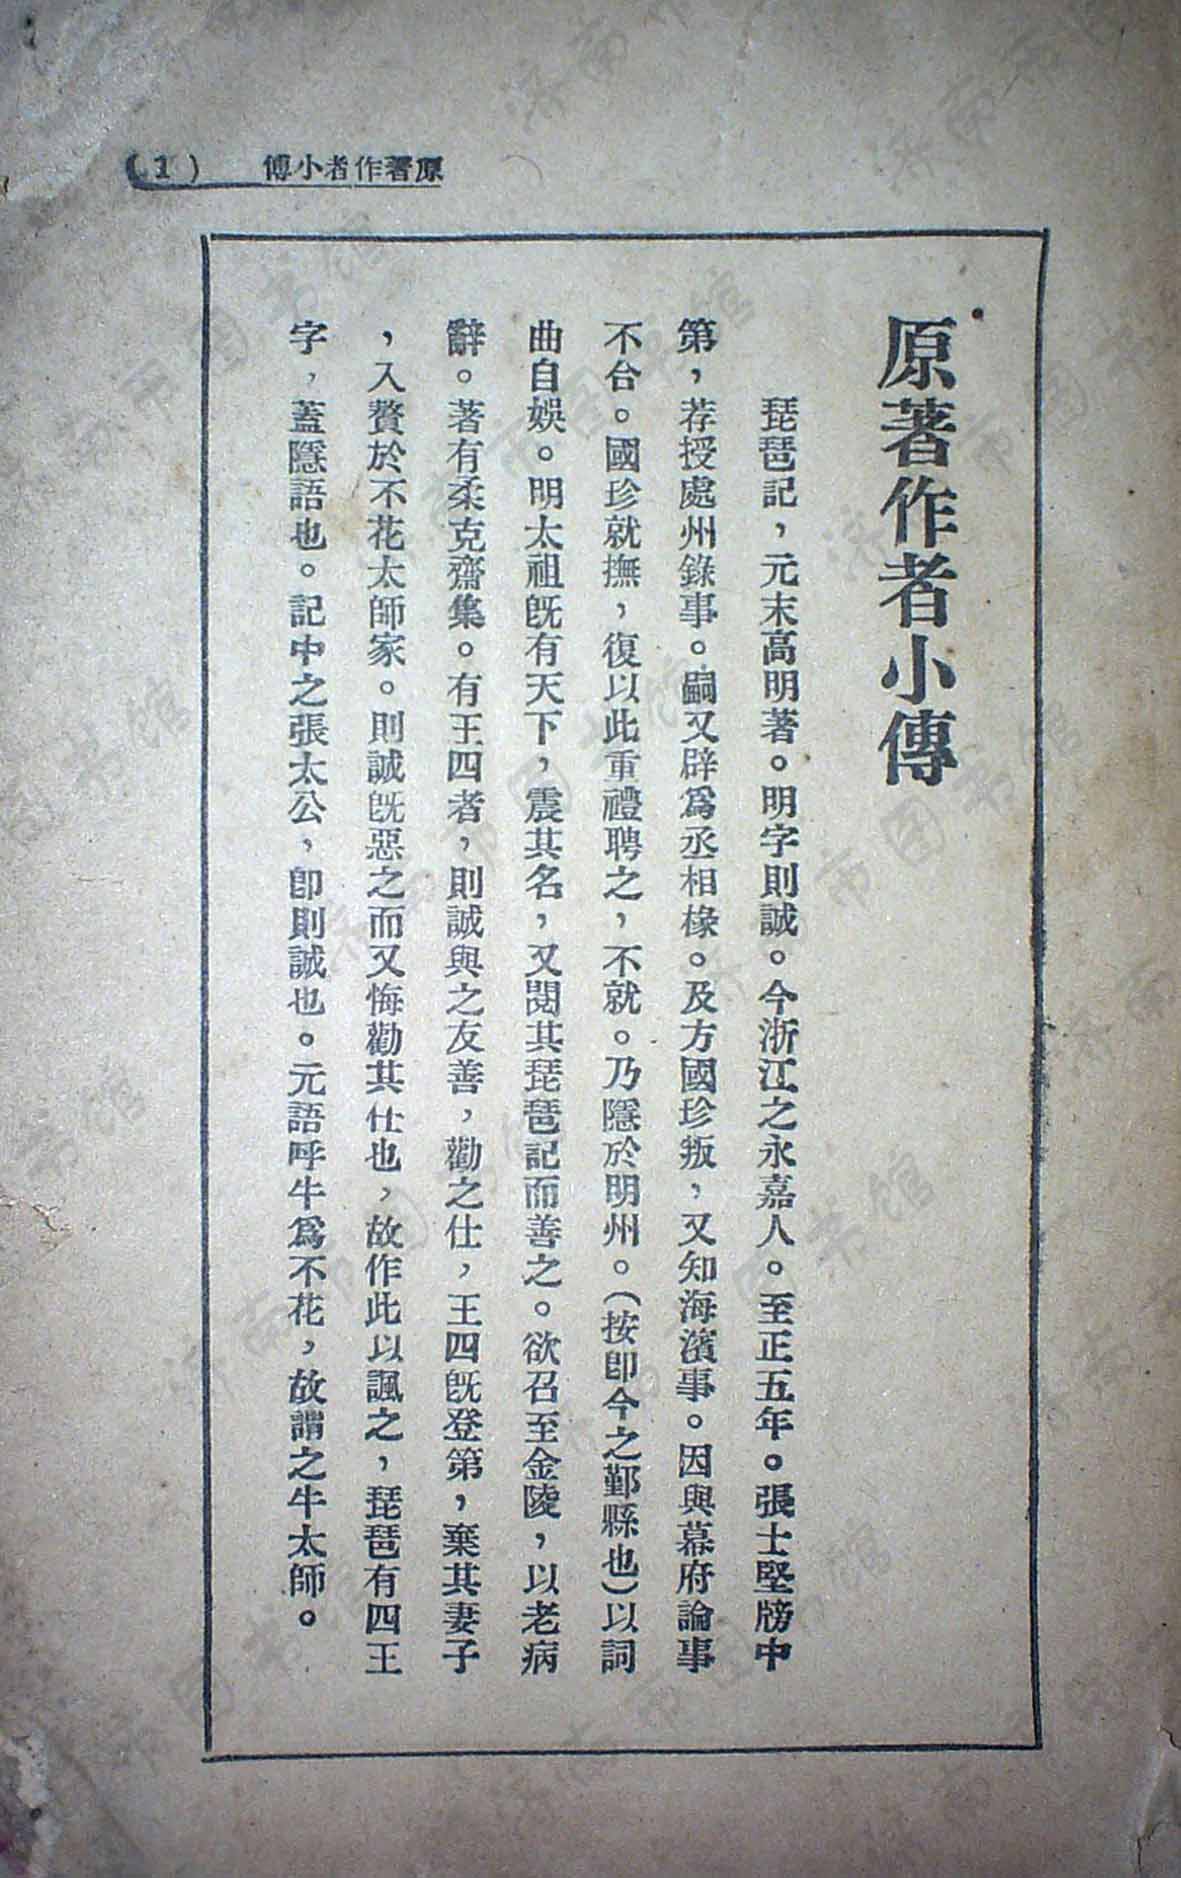 原著作者小傳 (1)
原著作者小傳
琵琶記，元末高明著。明字則誠。今浙江之永嘉人。至正五年。張士堅牓中
第，荐授處州錄事。嗣又辟爲丞相椽。及方國珍叛，又知海濱事。因與幕府論事
不合。國珍就撫，復以此重禮聘之，不就。乃隱於明州。（按卽今之鄞縣也）以詞
曲自娛。明太祖旣有天下，震其名，又閱其琵琶記而善之。欲召至金陵，以老病
辭。著有柔克齋集。有王四者，則誠與之友善，勸之仕，王四旣登第，棄其妻子
，入贅於不花太師家。則誠旣惡之而又悔勸其仕也，故作此以諷之，琵琶有四王
字，蓋隱語也。記中之張太公，卽則誠也。元語呼牛爲不花，故謂之牛太師。
济南市图书馆